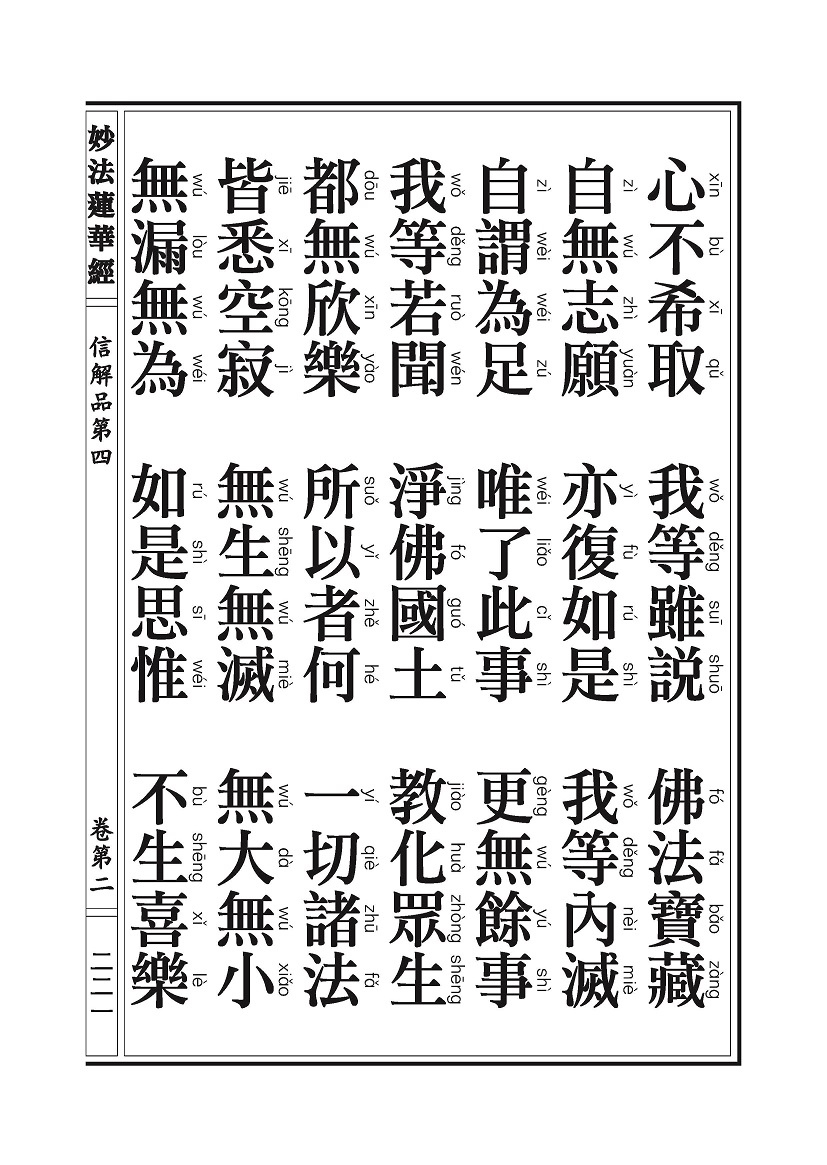 心不希取 我等雖説 佛法寶藏
xīn bù xī qǔ wǒ děng suī shuō fó fǎ bǎo zàng
自無志願 亦復如是 我等內滅
zì wú zhì yuàn yì fù rú shì wǒ děng nèi miè
自謂為足 唯了此事 更無餘事
zì wèi wéi zú wéi liǎo cǐ shì gèng wú yú shì
我等若聞 淨佛國土 教化眾生
wǒ děng ruò wén jìng fó guó tǔ jiào huà zhòng shēng
都無欣樂 所以者何 一切諸法
dōu wú xīn yào suǒ yǐ zhě hé yí qiè zhū fǎ
皆悉空寂 無生無滅 無大無小
jiē xī kōng jì wú shēng wú miè wú dà wú xiǎo
無漏無為 如是思惟 不生喜樂
wú lòu wú wéi rú shì sī wéi bù shēng xǐ lè
妙法蓮華經 信解品第四 卷第二 二二一